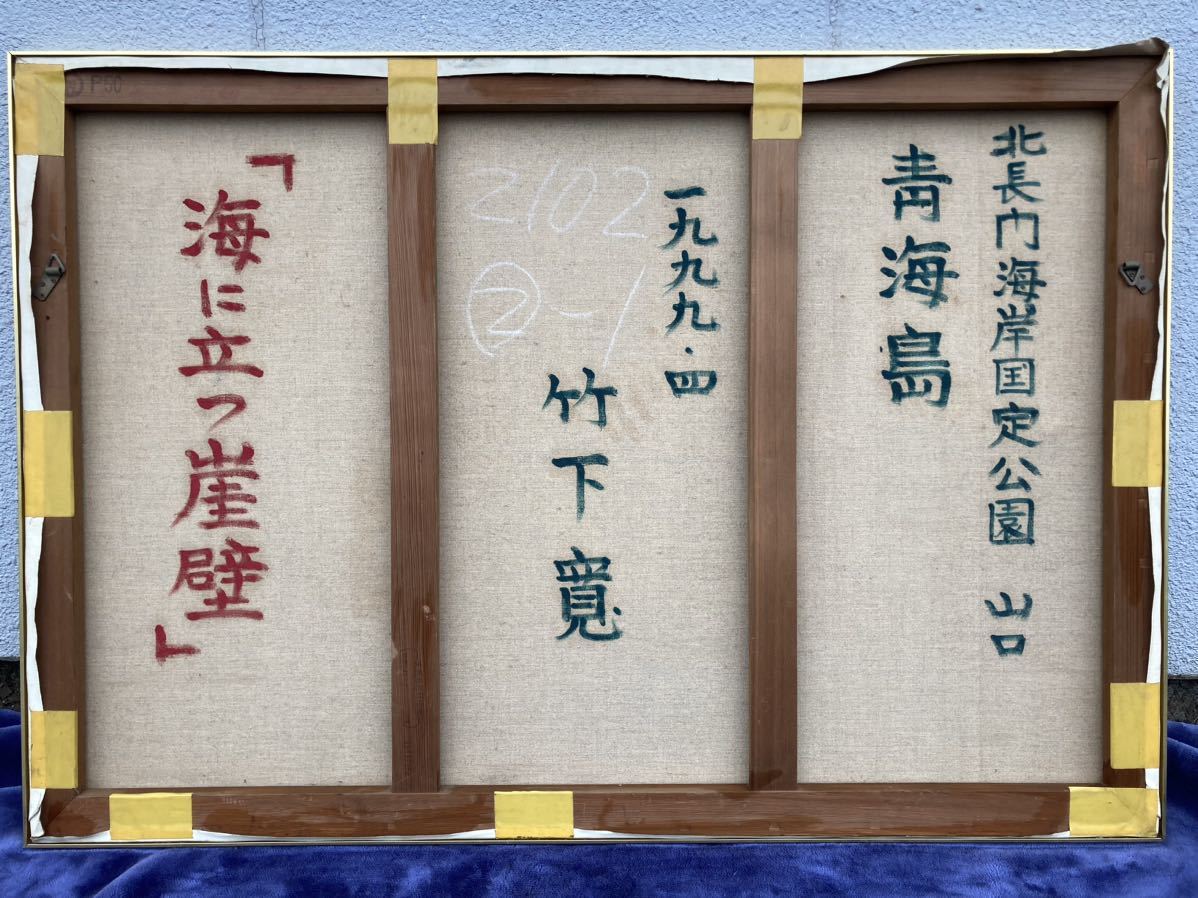 北長門海岸国定公園 山口
青海島
一九九九・四
竹下寛
2102
②-1
「海に立つ崖壁」
P50